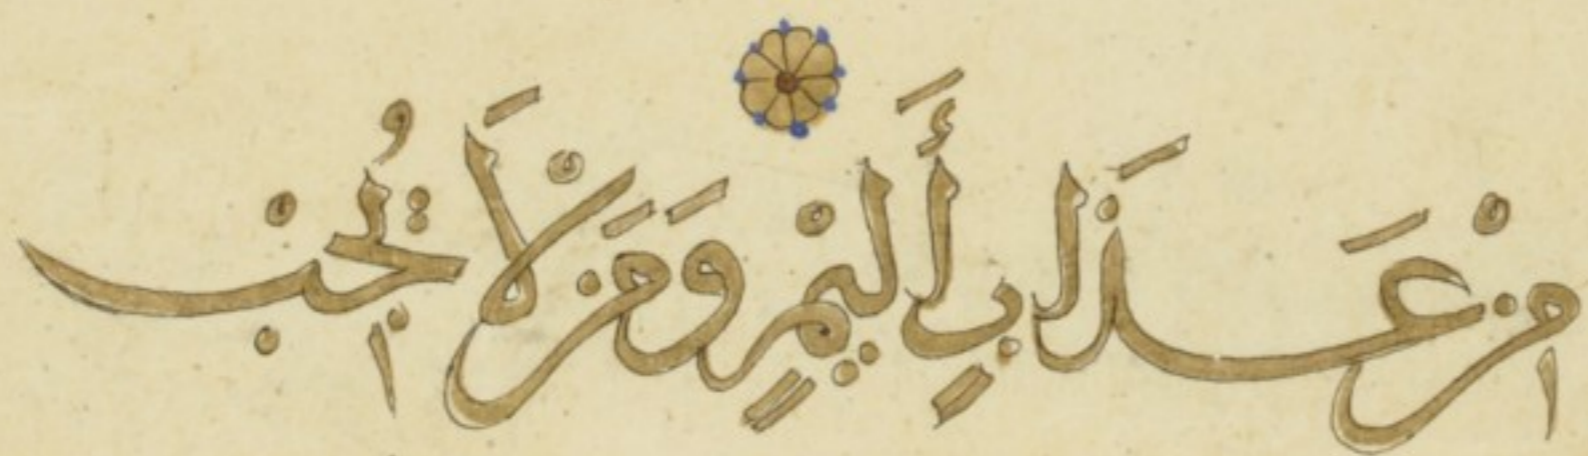 مِنْ عَذَابٍ أَلِيمٍ وَمَنْ لَا يُجِبْ